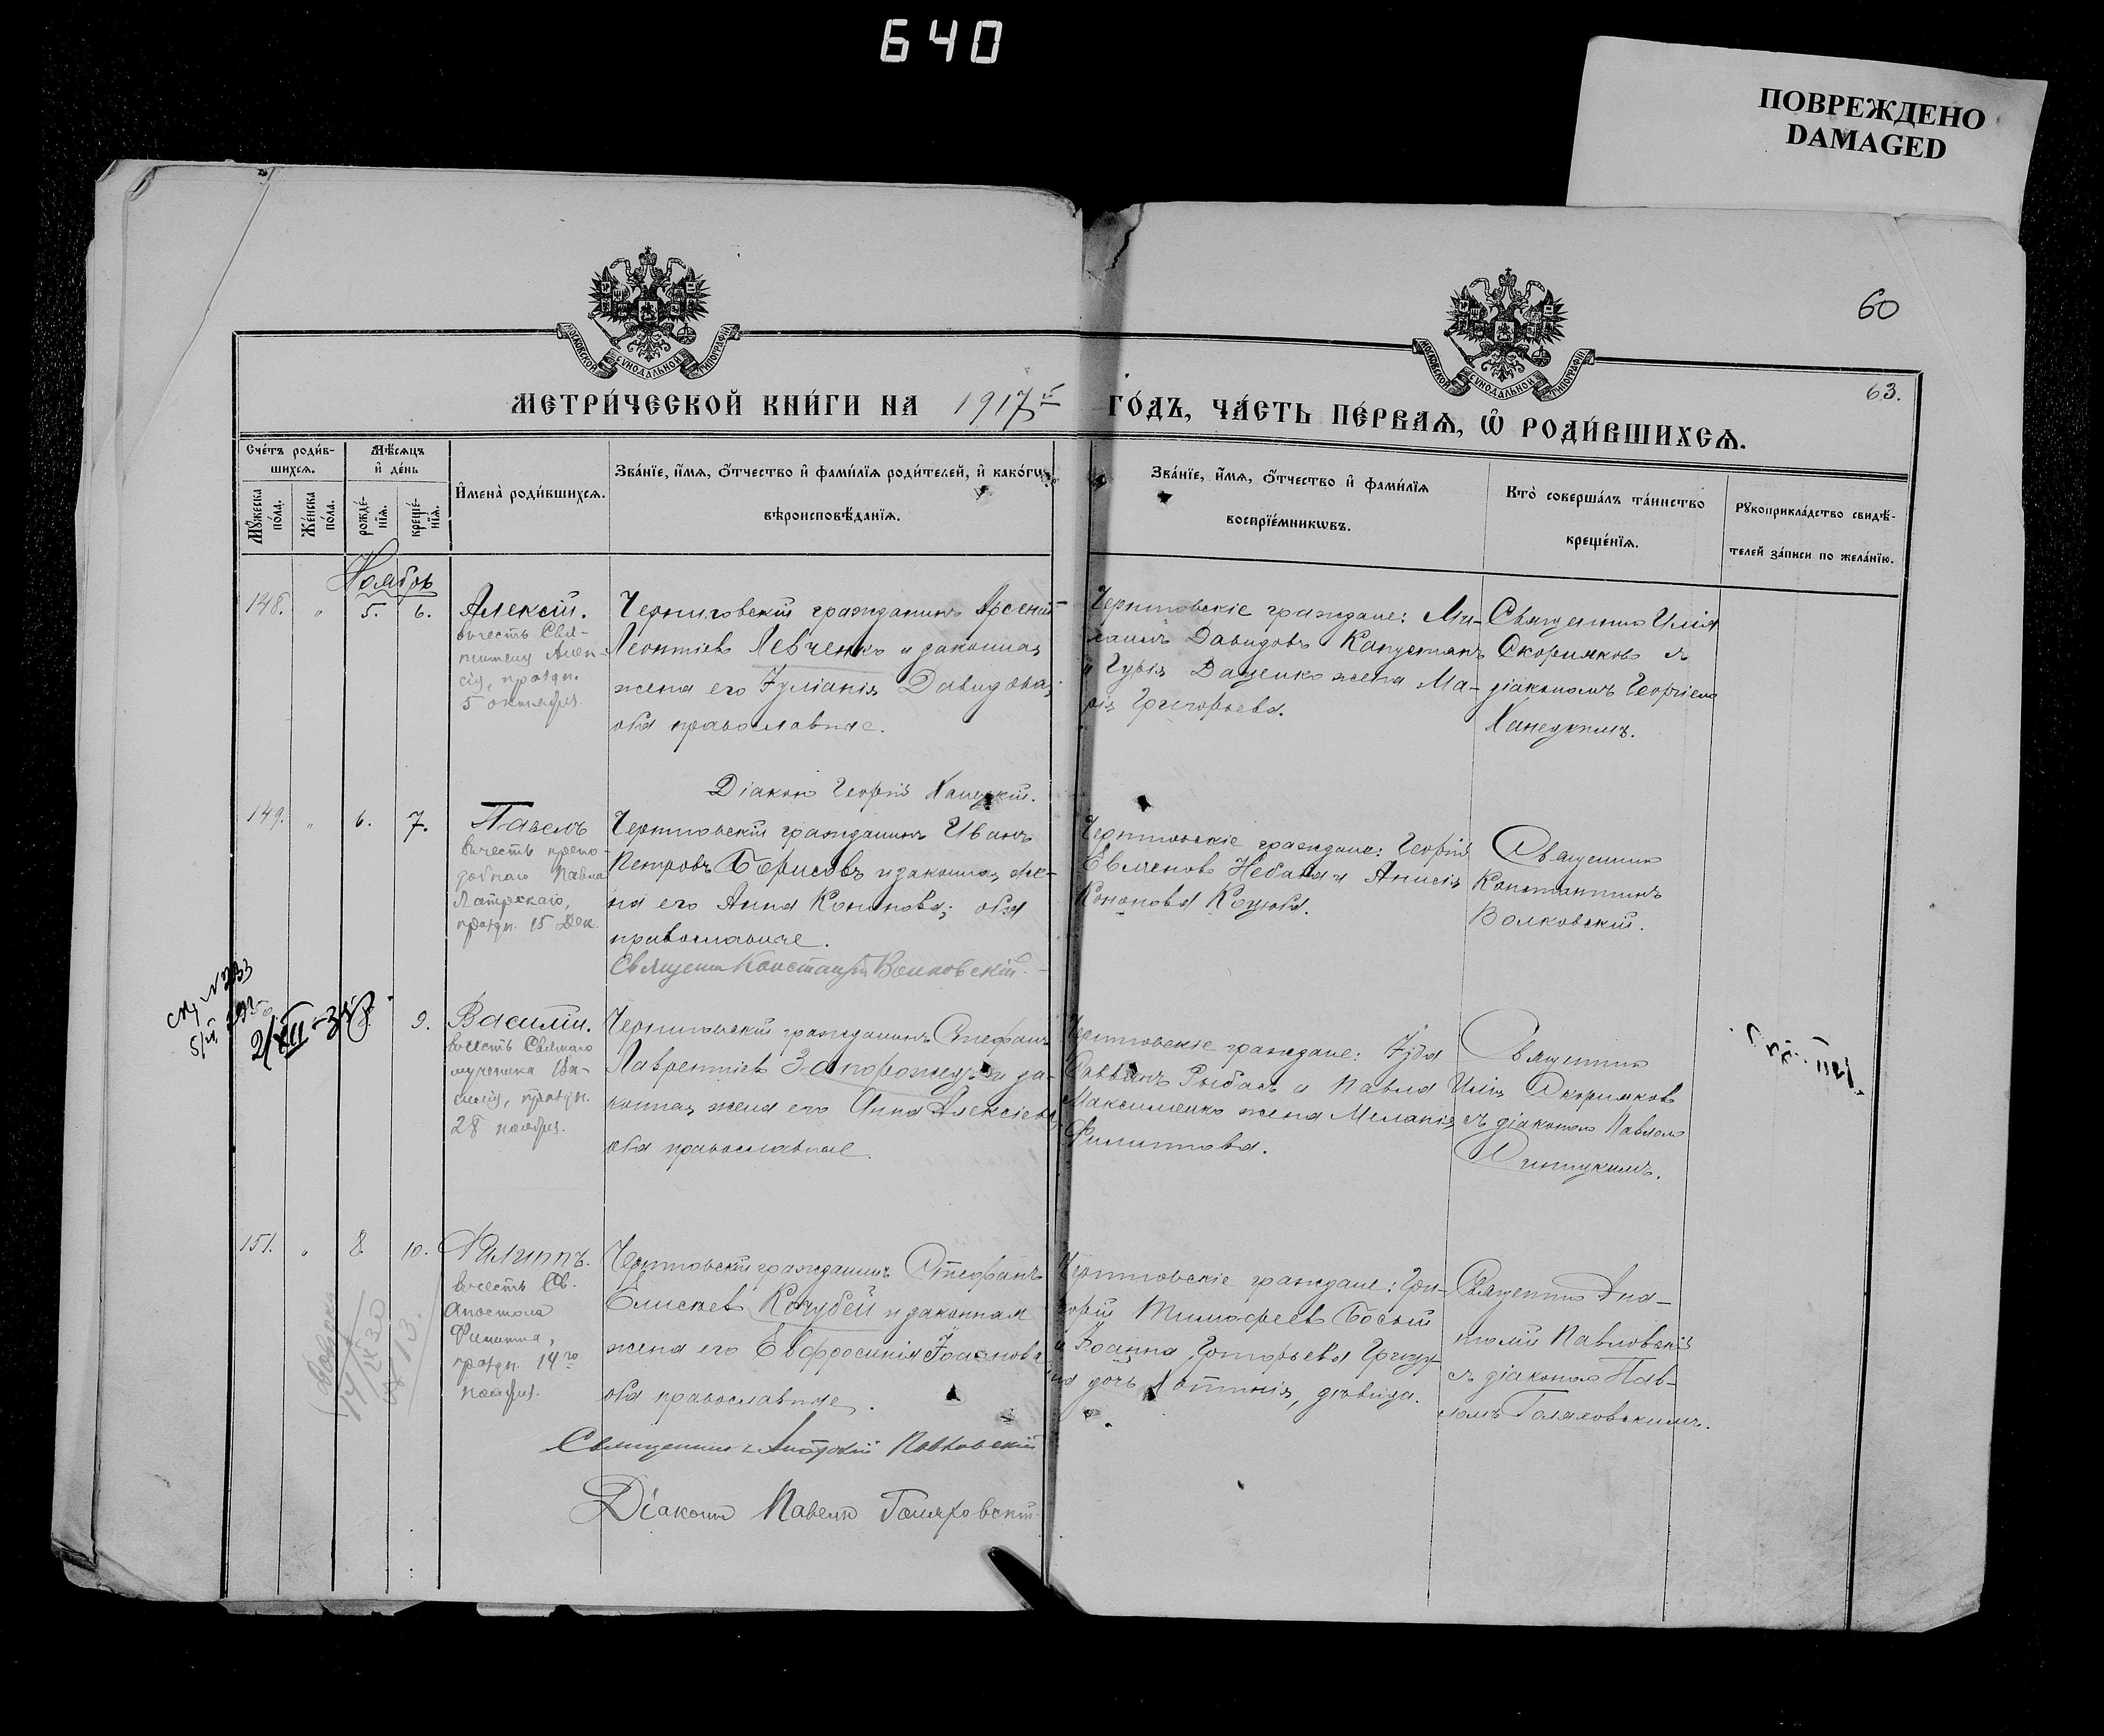 640
ПОВРЕЖДЕНО
DAMAGED
60
63.
МОСКОВСКОЙ СѴНОДАЛЬНОЙ ТИПОГРАФІИ
МОСКОВСКОЙ СѴНОДАЛЬНОЙ ТИПОГРАФІИ
МЕТРИ́ЧЕСКОЙ КНИ́ГИ НА 1917й ГО́ДЪ, ЧА́СТЬ ПЕ́РВАѦ, Ѽ РОДИ́ВШИХСѦ.
Сче́тъ роди́в-
шихсѧ.
Мꙋ́жеска
по́ла.
Же́нска
по́ла.
Мѣ́сѧцъ
и҆ де́нь
рожде́-
нїѧ.
креще́-
нїѧ.
И҆мена̀ роди́вшихсѧ.
Зва́нїе, и҆́мѧ, ѻ҆́тчество и҆ фами́лїѧ роди́телей, и҆ како́гѡ
вѣроисповѣ́данїѧ.
Зва́нїе, и҆́мѧ, ѻ҆́тчество и҆ фами́лїѧ
воспрїе́мникѡвъ.
Кто̀ соверша́лъ та́инство
креще́нїѧ.
Рꙋкоприкла́дство свидѣ́-
телей за́писи по жела́нїю.
Ноябрь
148. " 5. 6.
Алексій.
въ честь Свя-
тителя Алек-
сія, праздн.
5 октября.
Черниговскій гражданинъ Арсеній
Леонтіевъ Левченко и законная
жена его Іуліанія Давидова,
оба православные.
Діаконъ Георгій Ханецкій.
Черниговскіе граждане: Ми-
хаилъ Давидовъ Капустянъ
и Гурія Даценко жена Ма-
рія Григорьева.
Священникъ Илія
Скоряковъ съ
діакономъ Георгіемъ
Ханецкимъ.
149. " 6. 7.
Павелъ
въ честь препо-
добнаго Павла
Латрскаго,
праздн. 15 Дек.
Черниговскій гражданинъ Иванъ
Петровъ Борисовъ и законная же-
на его Анна Кононова; оба
православные.
Священникъ Константинъ Волковскій.
Черниговскіе граждане: Георгій
Евменовъ Небаба и Анисія
Кононова Коцюба.
Священникъ
Константинъ
Волковскій.
2/XII-35
9.
Василій.
въ честь Святаго
мученика Ва-
силія, праздн.
28 ноября.
Черниговскій гражданинъ Стефанъ
Лаврентіевъ Запорожецъ и за-
конная жена его Анна Алексіева
оба православные.
Черниговскіе граждане: Іуда
Саввинъ Рыбасъ и Павла
Максименко жена Меланія
Филиппова.
Священникъ
Илія Скоряковъ
съ діакономъ Павломъ
151. " 8. 10.
Филиппъ.
въ честь Св.
Апостола
Филиппа,
праздн. 14го
ноября.
Черниговскій гражданинъ Стефанъ
Елисеевъ Кочубей и законная
жена его Евфросинія Іоаннова
оба православные.
Священникъ Анатолій Павловскій
Діаконъ Павелъ Голяховскій
Черниговскіе граждане: Гри-
горій Тимофеевъ Босый
и Іоанна Григорьева
дочь Фотинія, дѣвица.
Священникъ Ана-
толій Павловскій
съ діакономъ Пав-
ломъ Голяховскимъ.